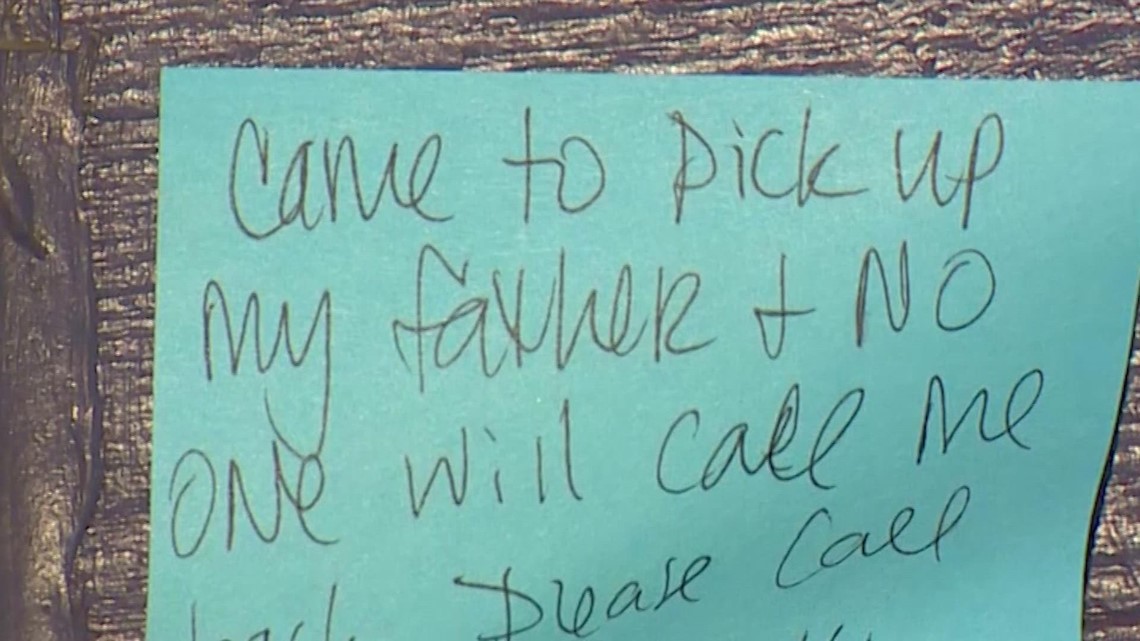 Came to pick up
my father + NO
ONe will call me
back Please call